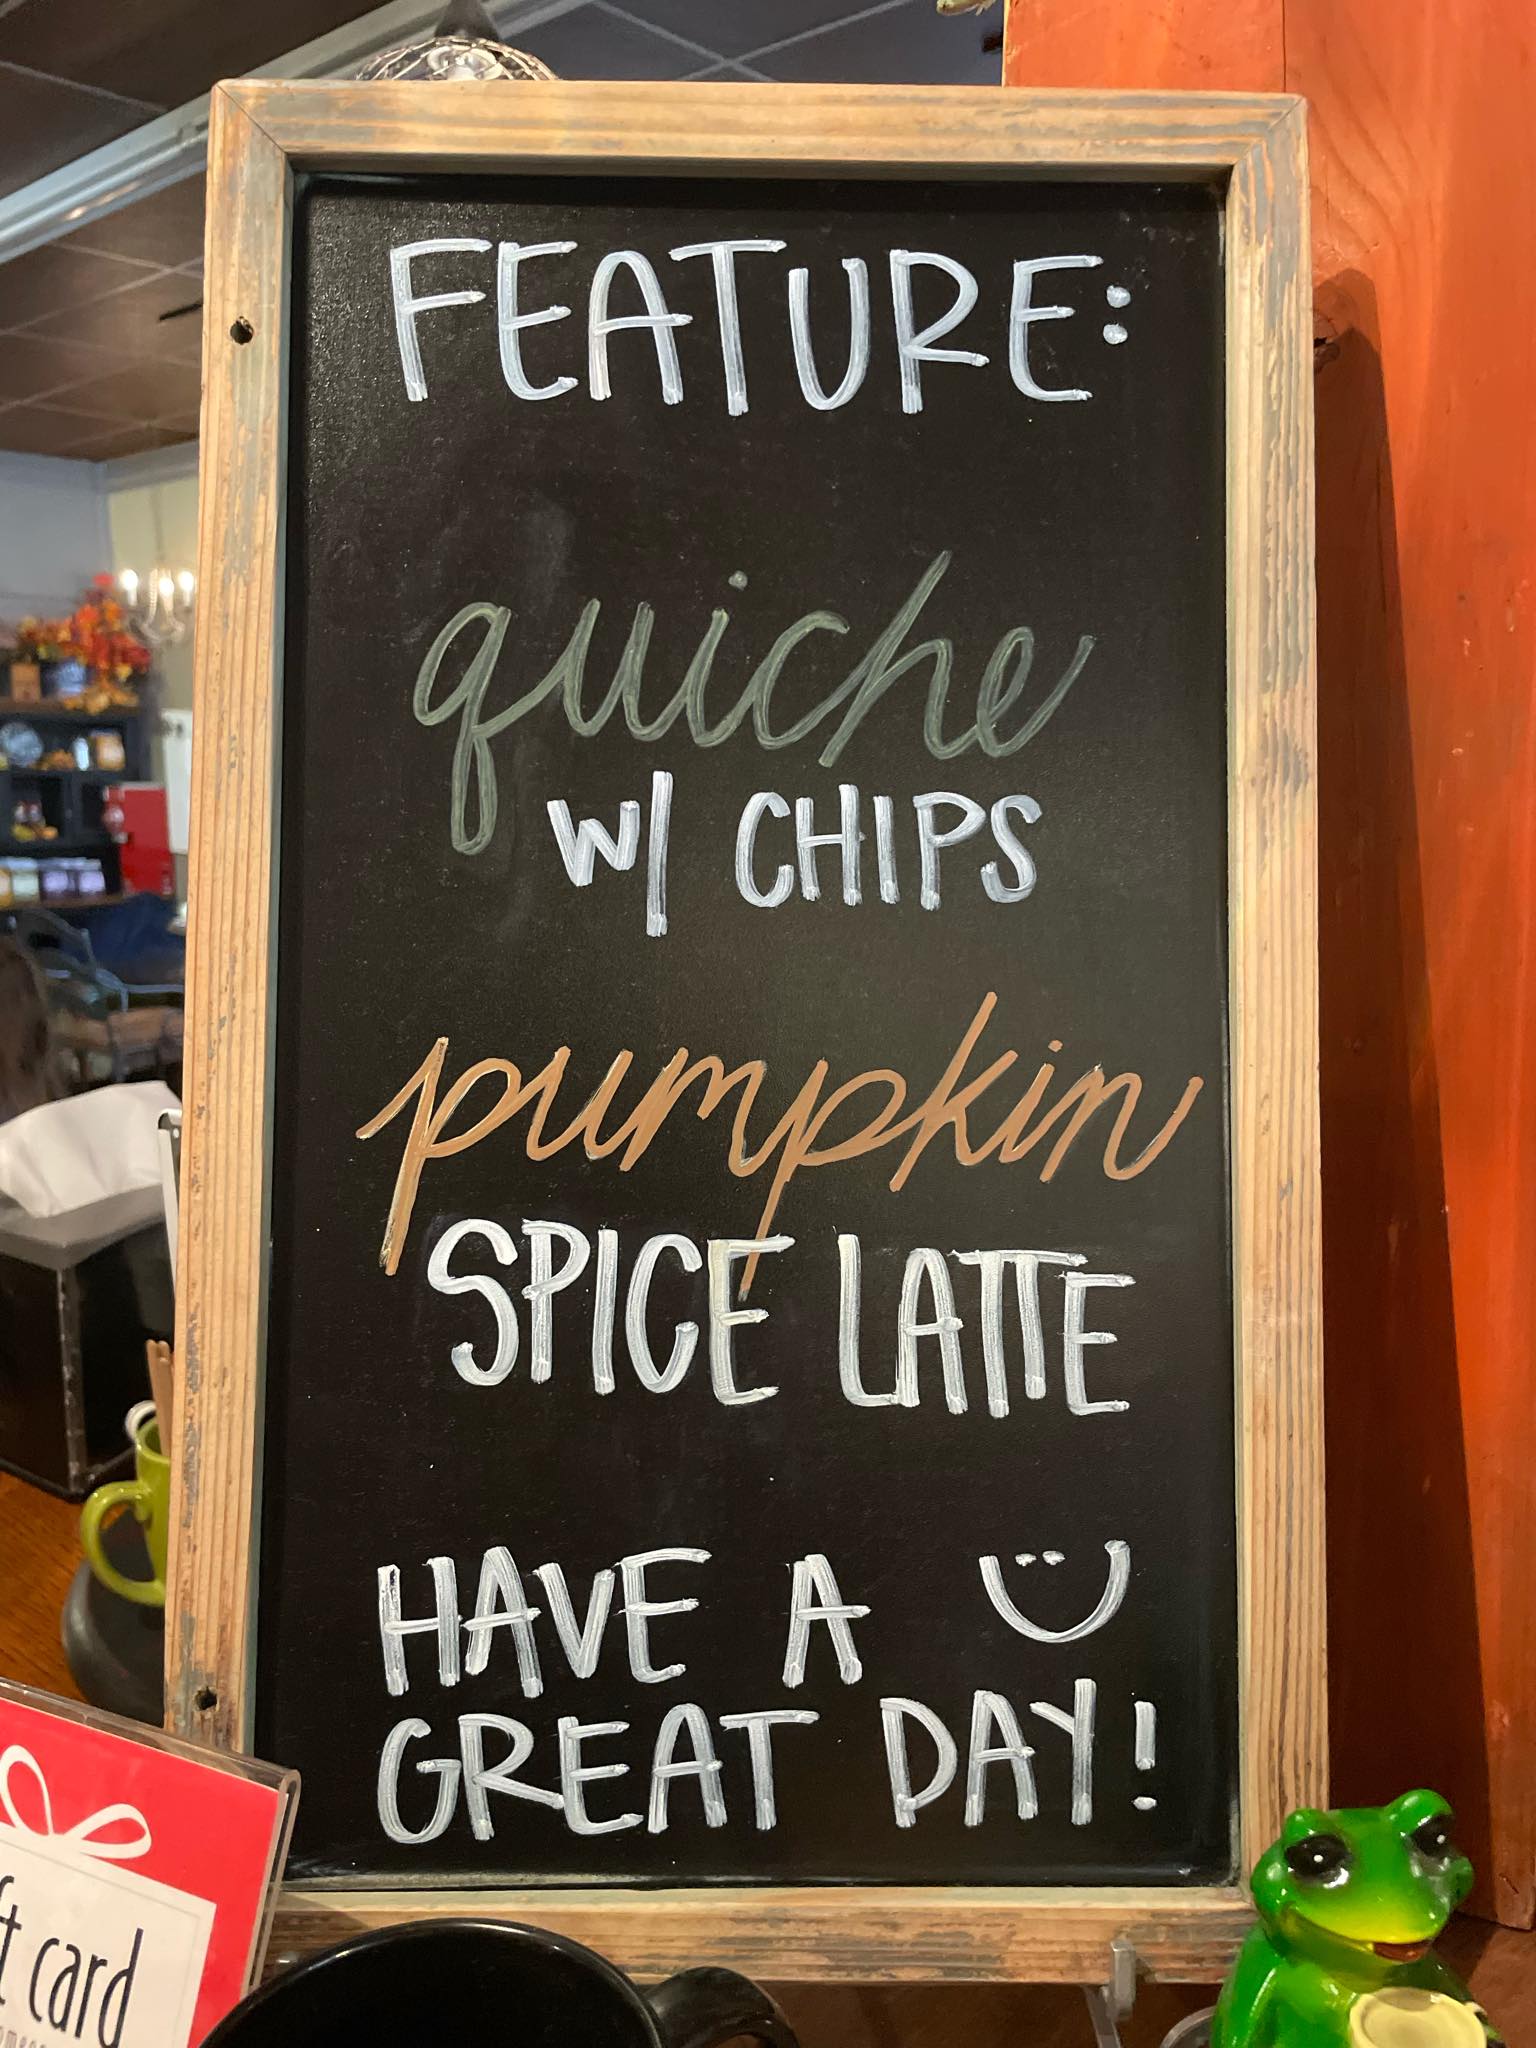 FEATURE:
quiche
W/ CHIPS
pumpkin
SPICE LATTE
HAVE A
GREAT DAY!
card